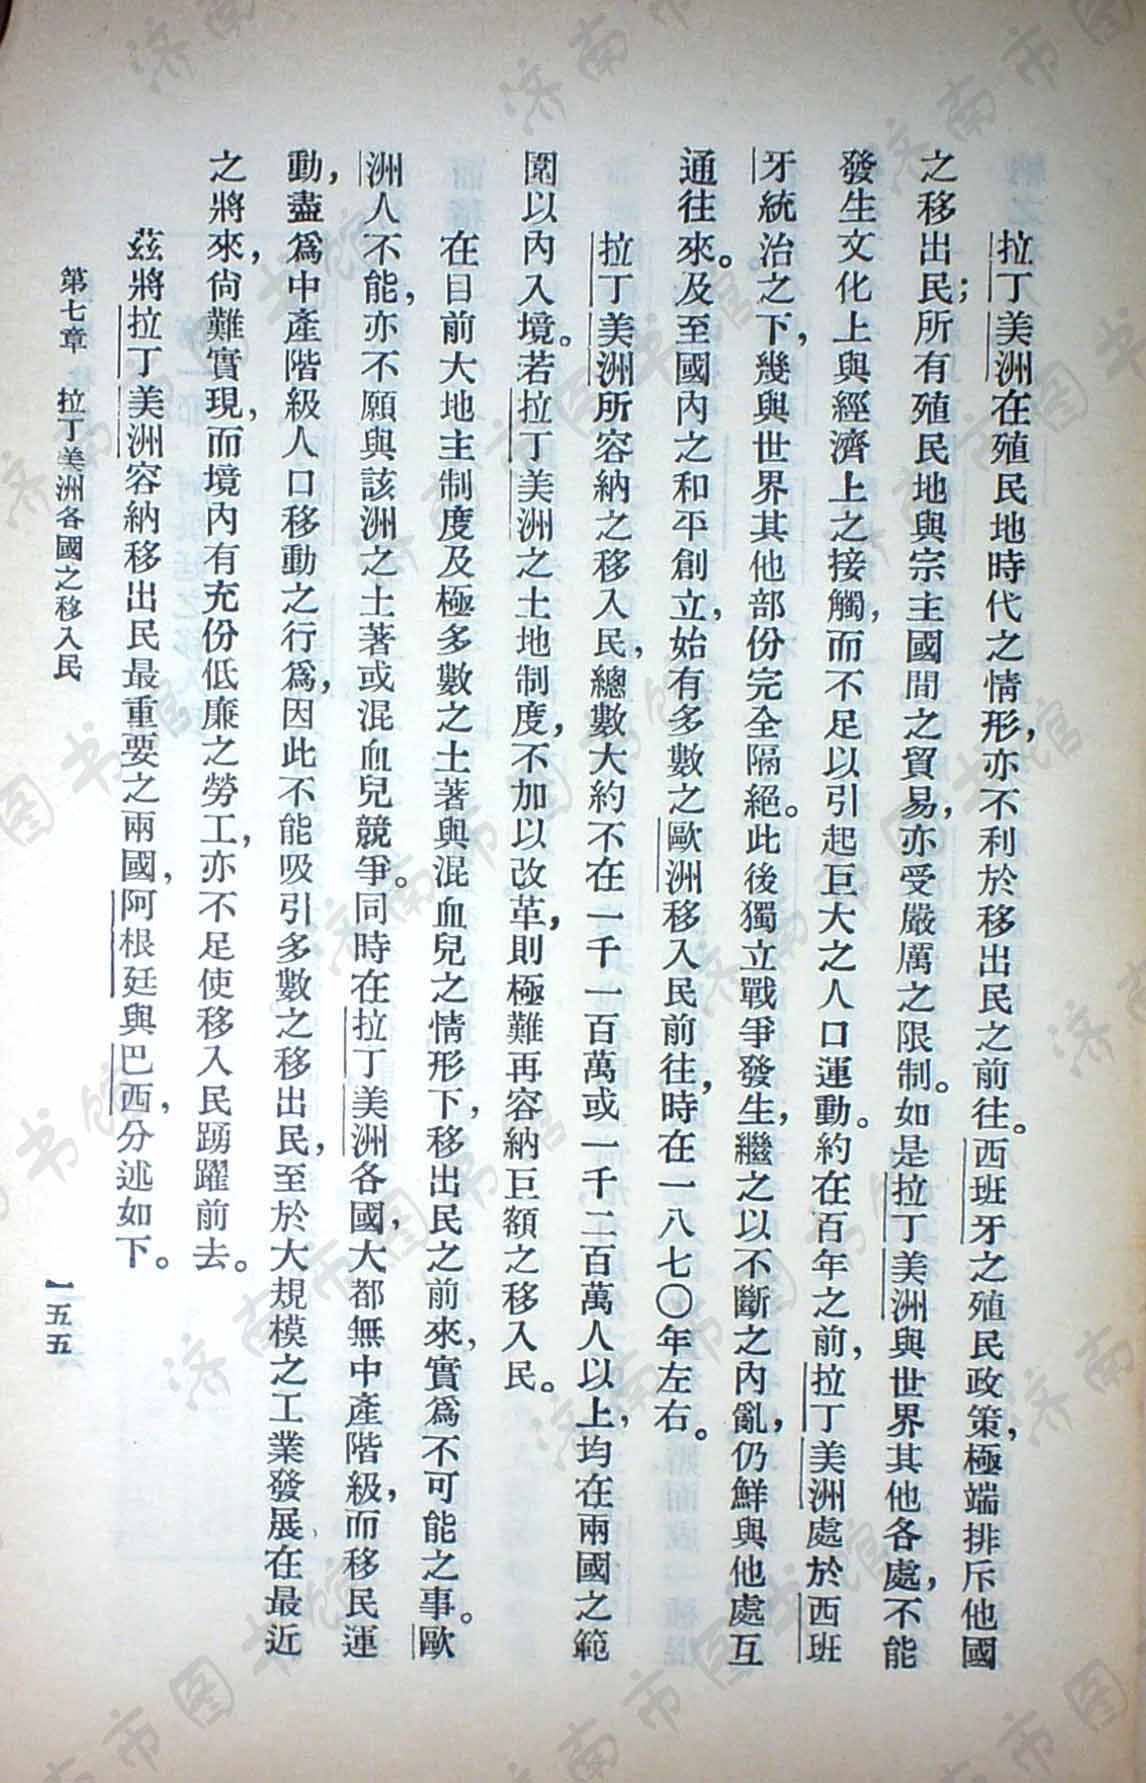 拉丁美洲在殖民地時代之情形，亦不利於移出民之前往。西班牙之殖民政策，極端排斥他國
之移出民；所有殖民地與宗主國間之貿易，亦受嚴厲之限制。如是拉丁美洲與世界其他各處，不能
發生文化上與經濟上之接觸，而不足以引起巨大之人口運動。約在百年之前，拉丁美洲處於西班
牙統治之下，幾與世界其他部份完全隔絕。此後獨立戰爭發生，繼之以不斷之內亂，仍鮮與他處互
通往來。及至國內之和平創立，始有多數之歐洲移入民前往，時在一八七〇年左右。
拉丁美洲所容納之移入民，總數大約不在一千一百萬或一千二百萬人以上，均在兩國之範
圍以內入境。若拉丁美洲之土地制度，不加以改革，則極難再容納巨額之移入民。
在目前大地主制度及極多數之土著與混血兒之情形下，移出民之前來，實為不可能之事。歐
洲人不能，亦不願與該洲之土著或混血兒競爭。同時在拉丁美洲各國，大都無中產階級，而移民運
動，盡為中產階級人口移動之行為，因此不能吸引多數之移出民，至於大規模之工業發展，在最近
之將來，尙難實現，而境內有充份低廉之勞工，亦不足使移入民踴躍前去。
茲將拉丁美洲容納移出民最重要之兩國，阿根廷與巴西，分述如下。
第七章　拉丁美洲各國之移入民
一五五
济南市图书馆